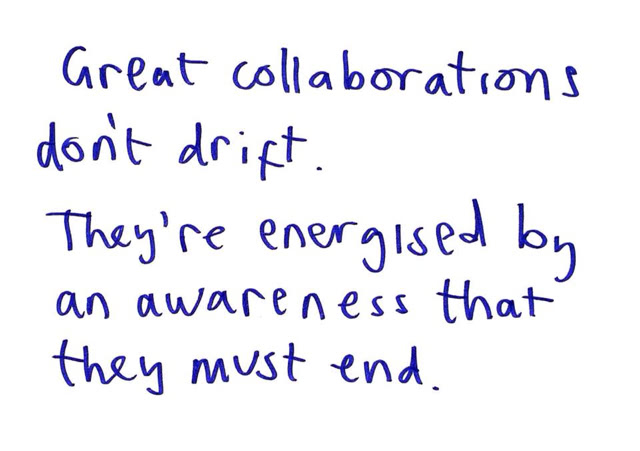 Great collaborations
don't drift.
They're energised by
an awareness that
they must end.